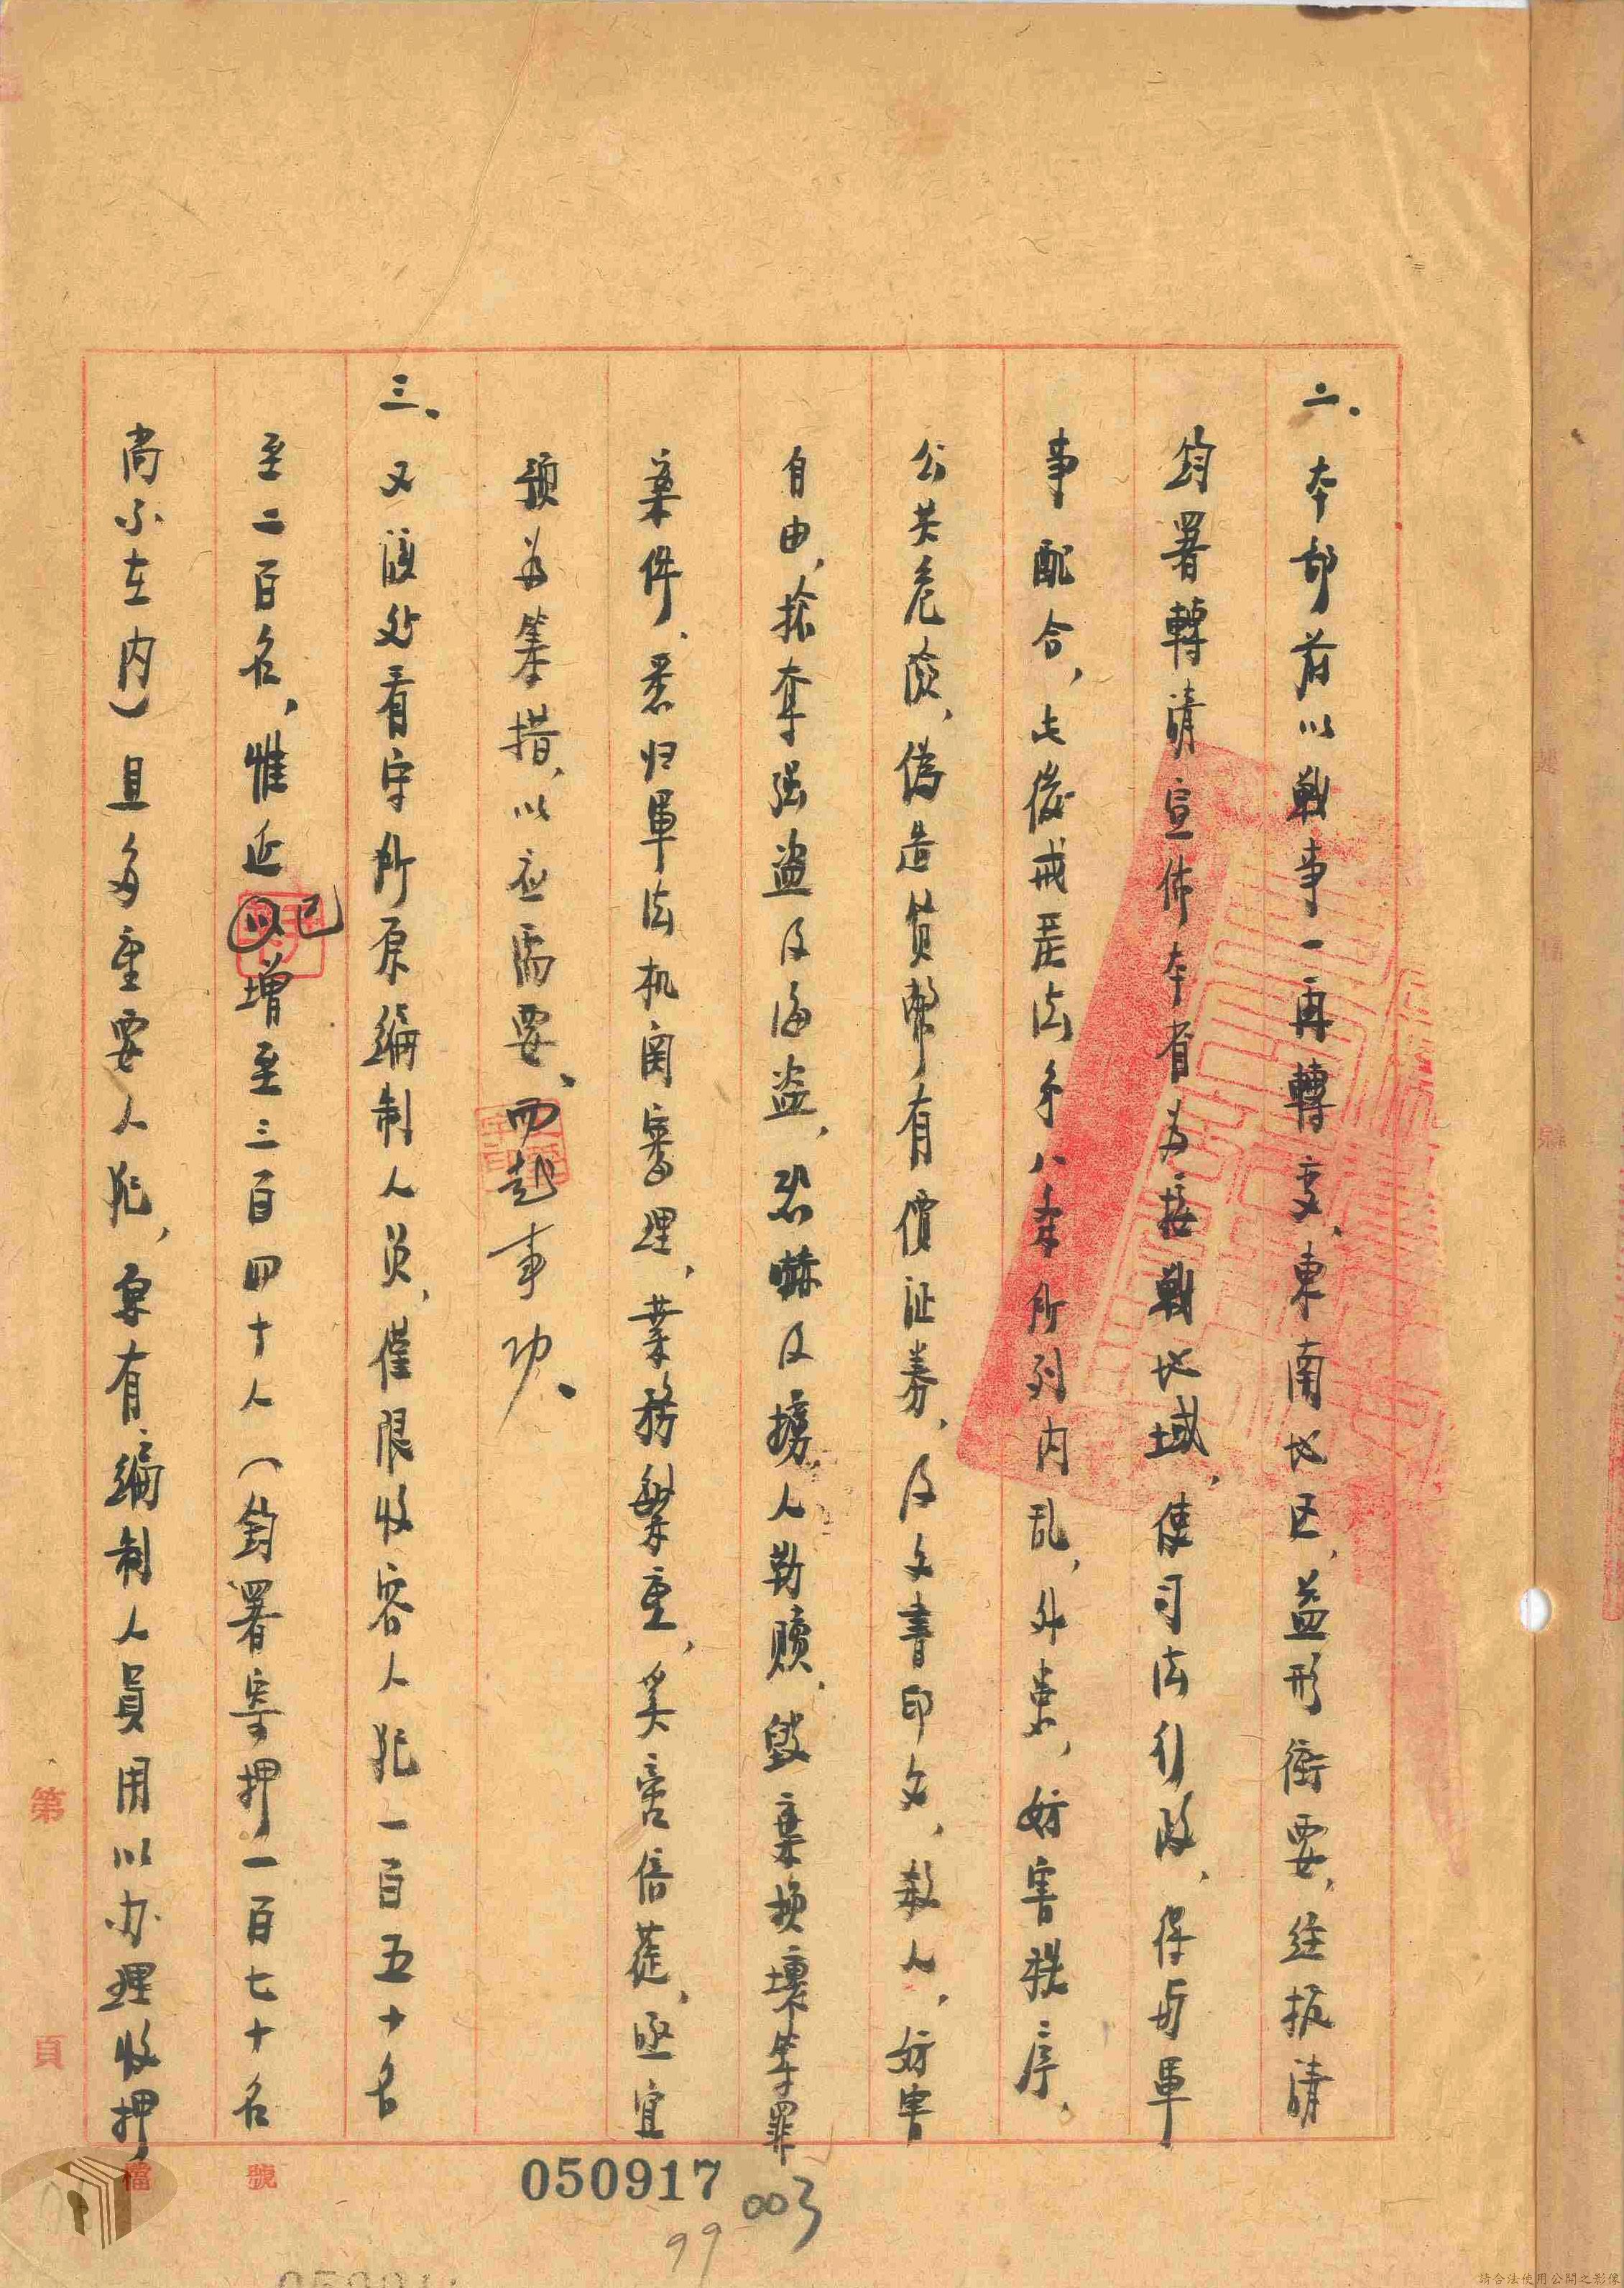 二、本部前以戰事一再轉变、東南地区，益形衝要，經报請
鈞署轉請宣佈本省为接戰地域，使司法行政，得与軍
事配合，此後戒严法第八条所列内乱，外患，妨害秩序，
公共危险，偽造貨幣有價证券，及文書印文，殺人，妨害
自由，抢夺强盗及海盗，恐嚇及擄人勒贖，毁棄损壞等罪
案件，悉归軍法机関審理，業務繁重，奚啻倍蓰，亟宜
预为筹措，以应需要，而赴事功。
三、又该处看守所原編制人员，僅限收容人犯一百五十名
至二百名，惟近已增至三百四十人（鈞署寄押一百七十名
尚不在内）且多重要人犯，原有編制人員用以办理收押
第 頁
檔 號
050917
003
99
請合法使用公開之影像